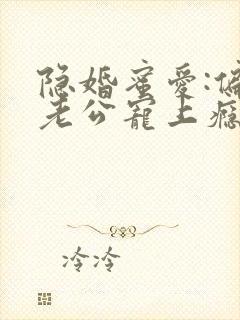 隐婚蜜爱:偏
老公宠上瘾
冷冷